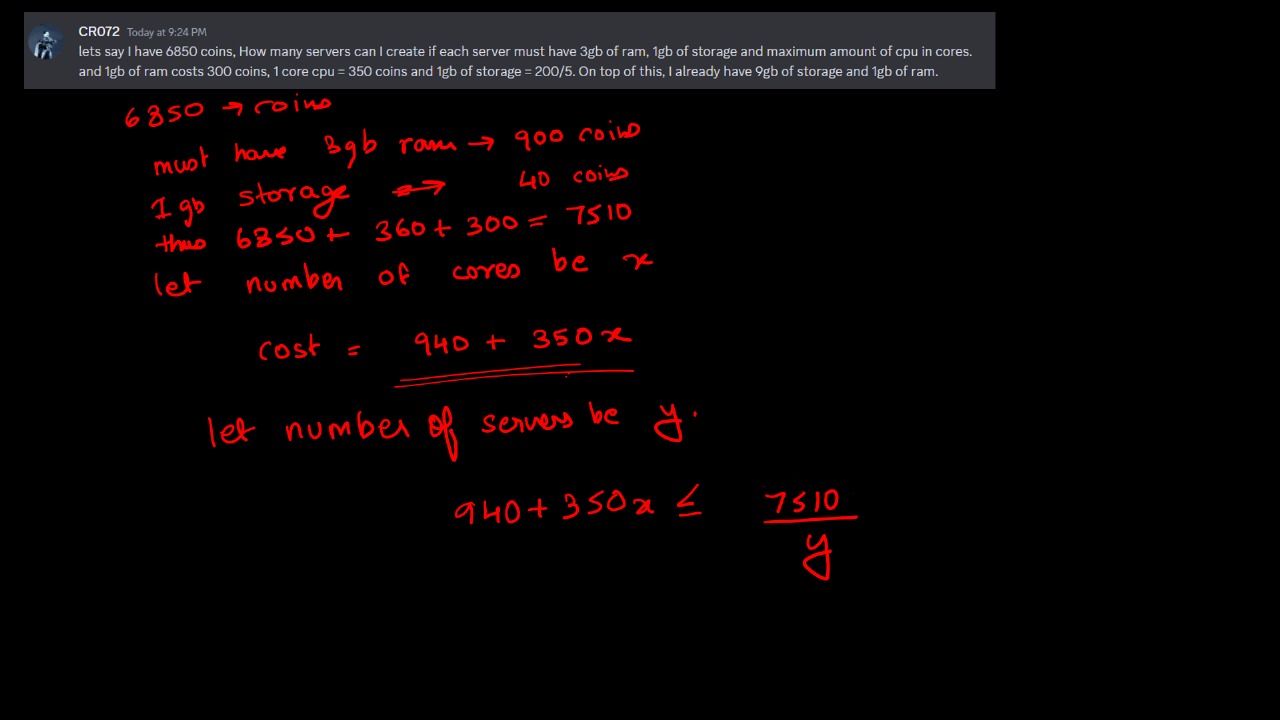 CR072 Today at 9:24 PM
lets say I have 6850 coins, How many servers can I create if each server must have 3gb of ram, 1gb of storage and maximum amount of cpu in cores.
and 1gb of ram costs 300 coins, 1 core cpu = 350 coins and 1gb of storage = 200/5. On top of this, I already have 9gb of storage and 1gb of ram.
6850 → coins
must have 3gb ram → 900 coins
1gb storage → 40 coins
thus 6850 + 360 + 300 = 7510
let number of cores be x
cost = 940 + 350x
let number of servers be y.
940 + 350x ≤ 7510
y